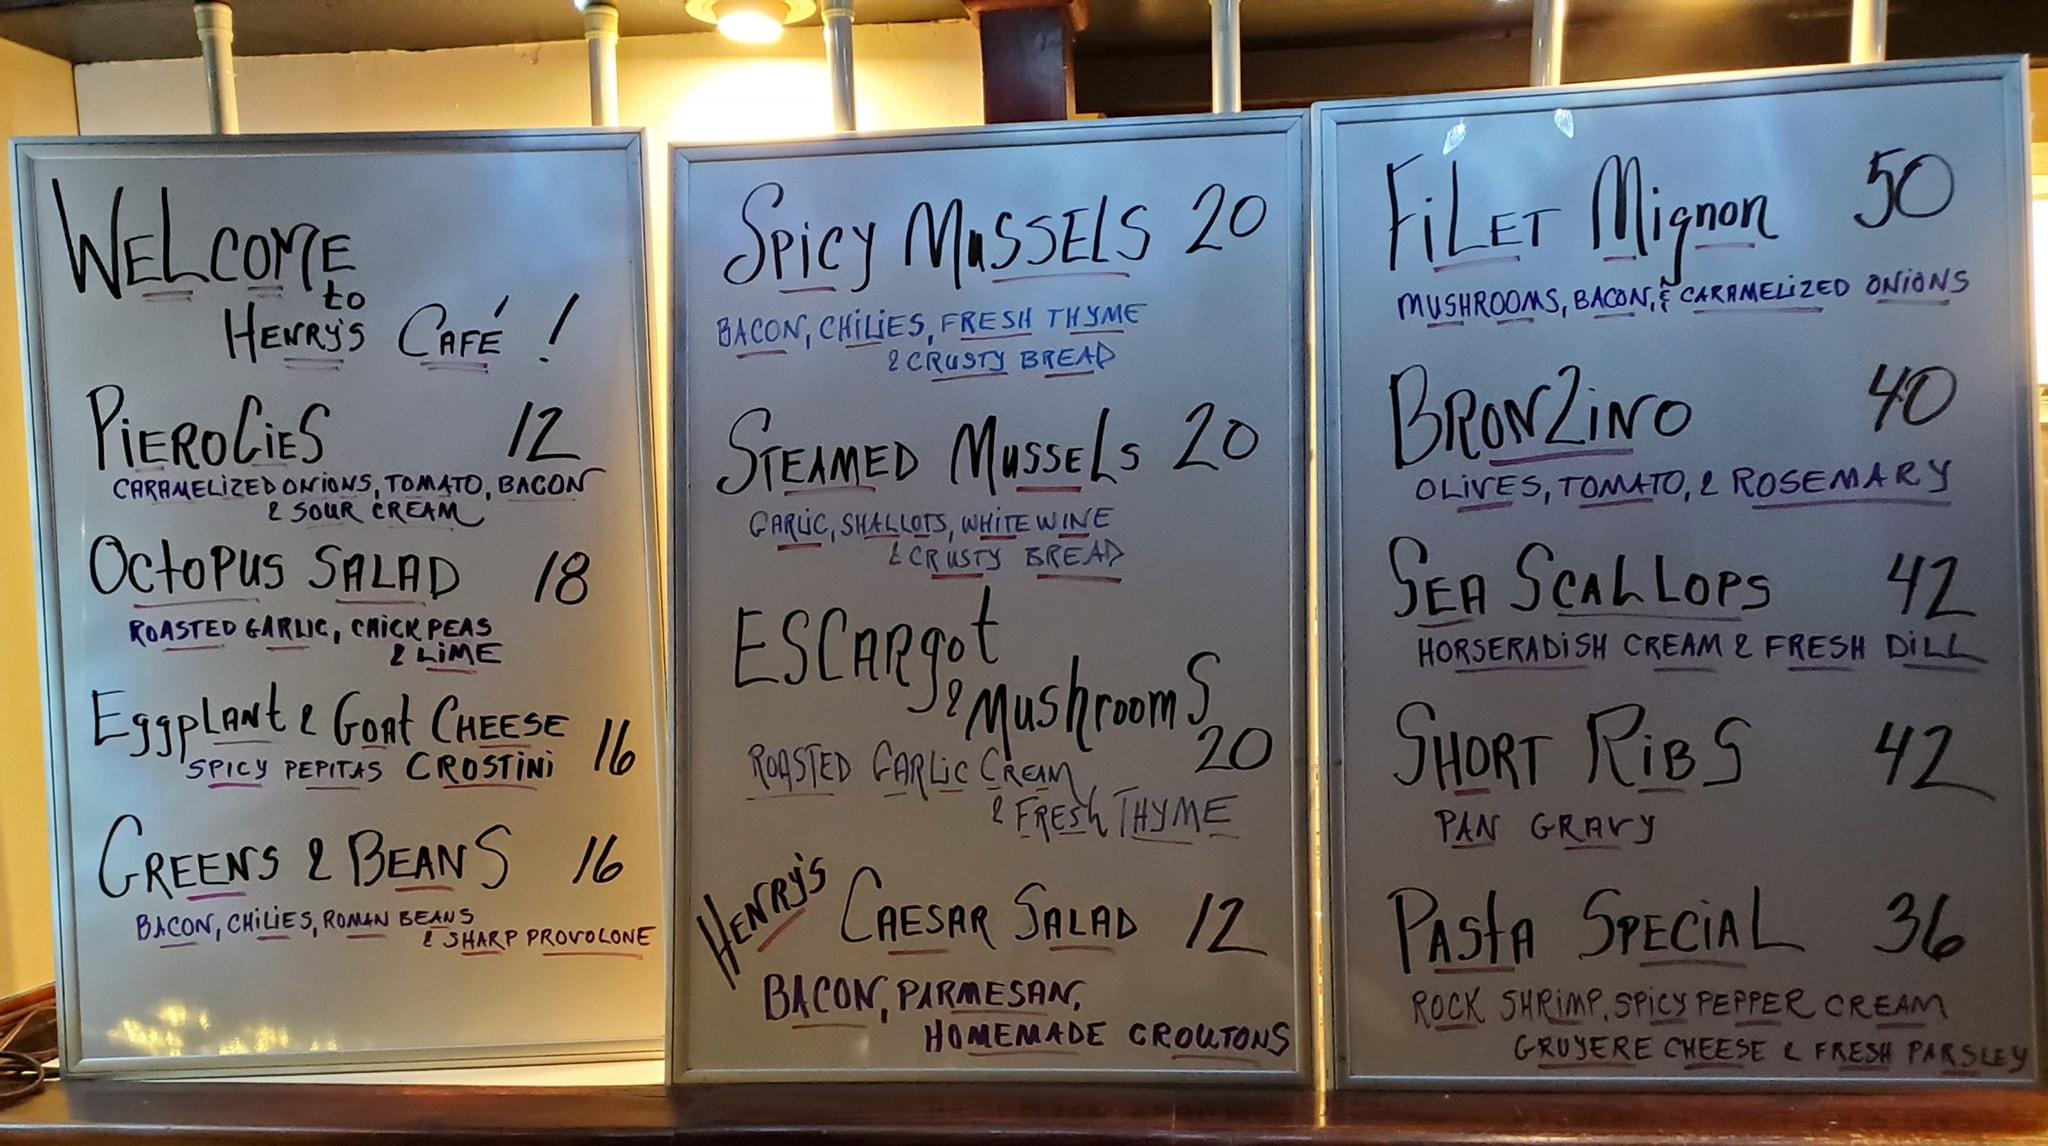 WELCOME
to
HENRY'S CAFÉ!
PIEROGIES 12
CARAMELIZED ONIONS, TOMATO, BACON
& SOUR CREAM
OCTOPUS SALAD 18
ROASTED GARLIC, CHICK PEAS
& LIME
Eggplant & Goat CHEESE 16
SPICY PEPITAS CROSTINI
GREENS & BEANS 16
BACON, CHILIES, ROMAN BEANS
& SHARP PROVOLONE
SPICY MUSSELS 20
BACON, CHILIES, FRESH THYME
& CRUSTY BREAD
STEAMED MUSSELS 20
GARLIC, SHALLOTS, WHITE WINE
& CRUSTY BREAD
ESCARgot
& MushroomS
20
ROASTED GARLIC CREAM
& FRESH THYME
HENRY'S CAESAR SALAD 12
BACON, PARMESAN,
HOMEMADE CROUTONS
FILET Mignon 50
MUSHROOMS, BACON, & CARAMELIZED ONIONS
BRONZINO 40
OLIVES, TOMATO, & ROSEMARY
SEA SCALLOPS 42
HORSERADISH CREAM & FRESH DILL
SHORT RIBS 42
PAN GRAVY
PASTA SPECIAL 36
ROCK SHRIMP, SPICY PEPPER CREAM
GRUYERE CHEESE & FRESH PARSLEY